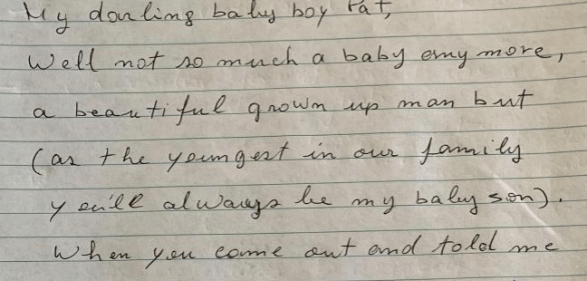 My darling baby boy Pat,
Well not so much a baby any more,
a beautiful grown up man but
(as the youngest in our family
you'll always be my baby son).
When you came out and told me